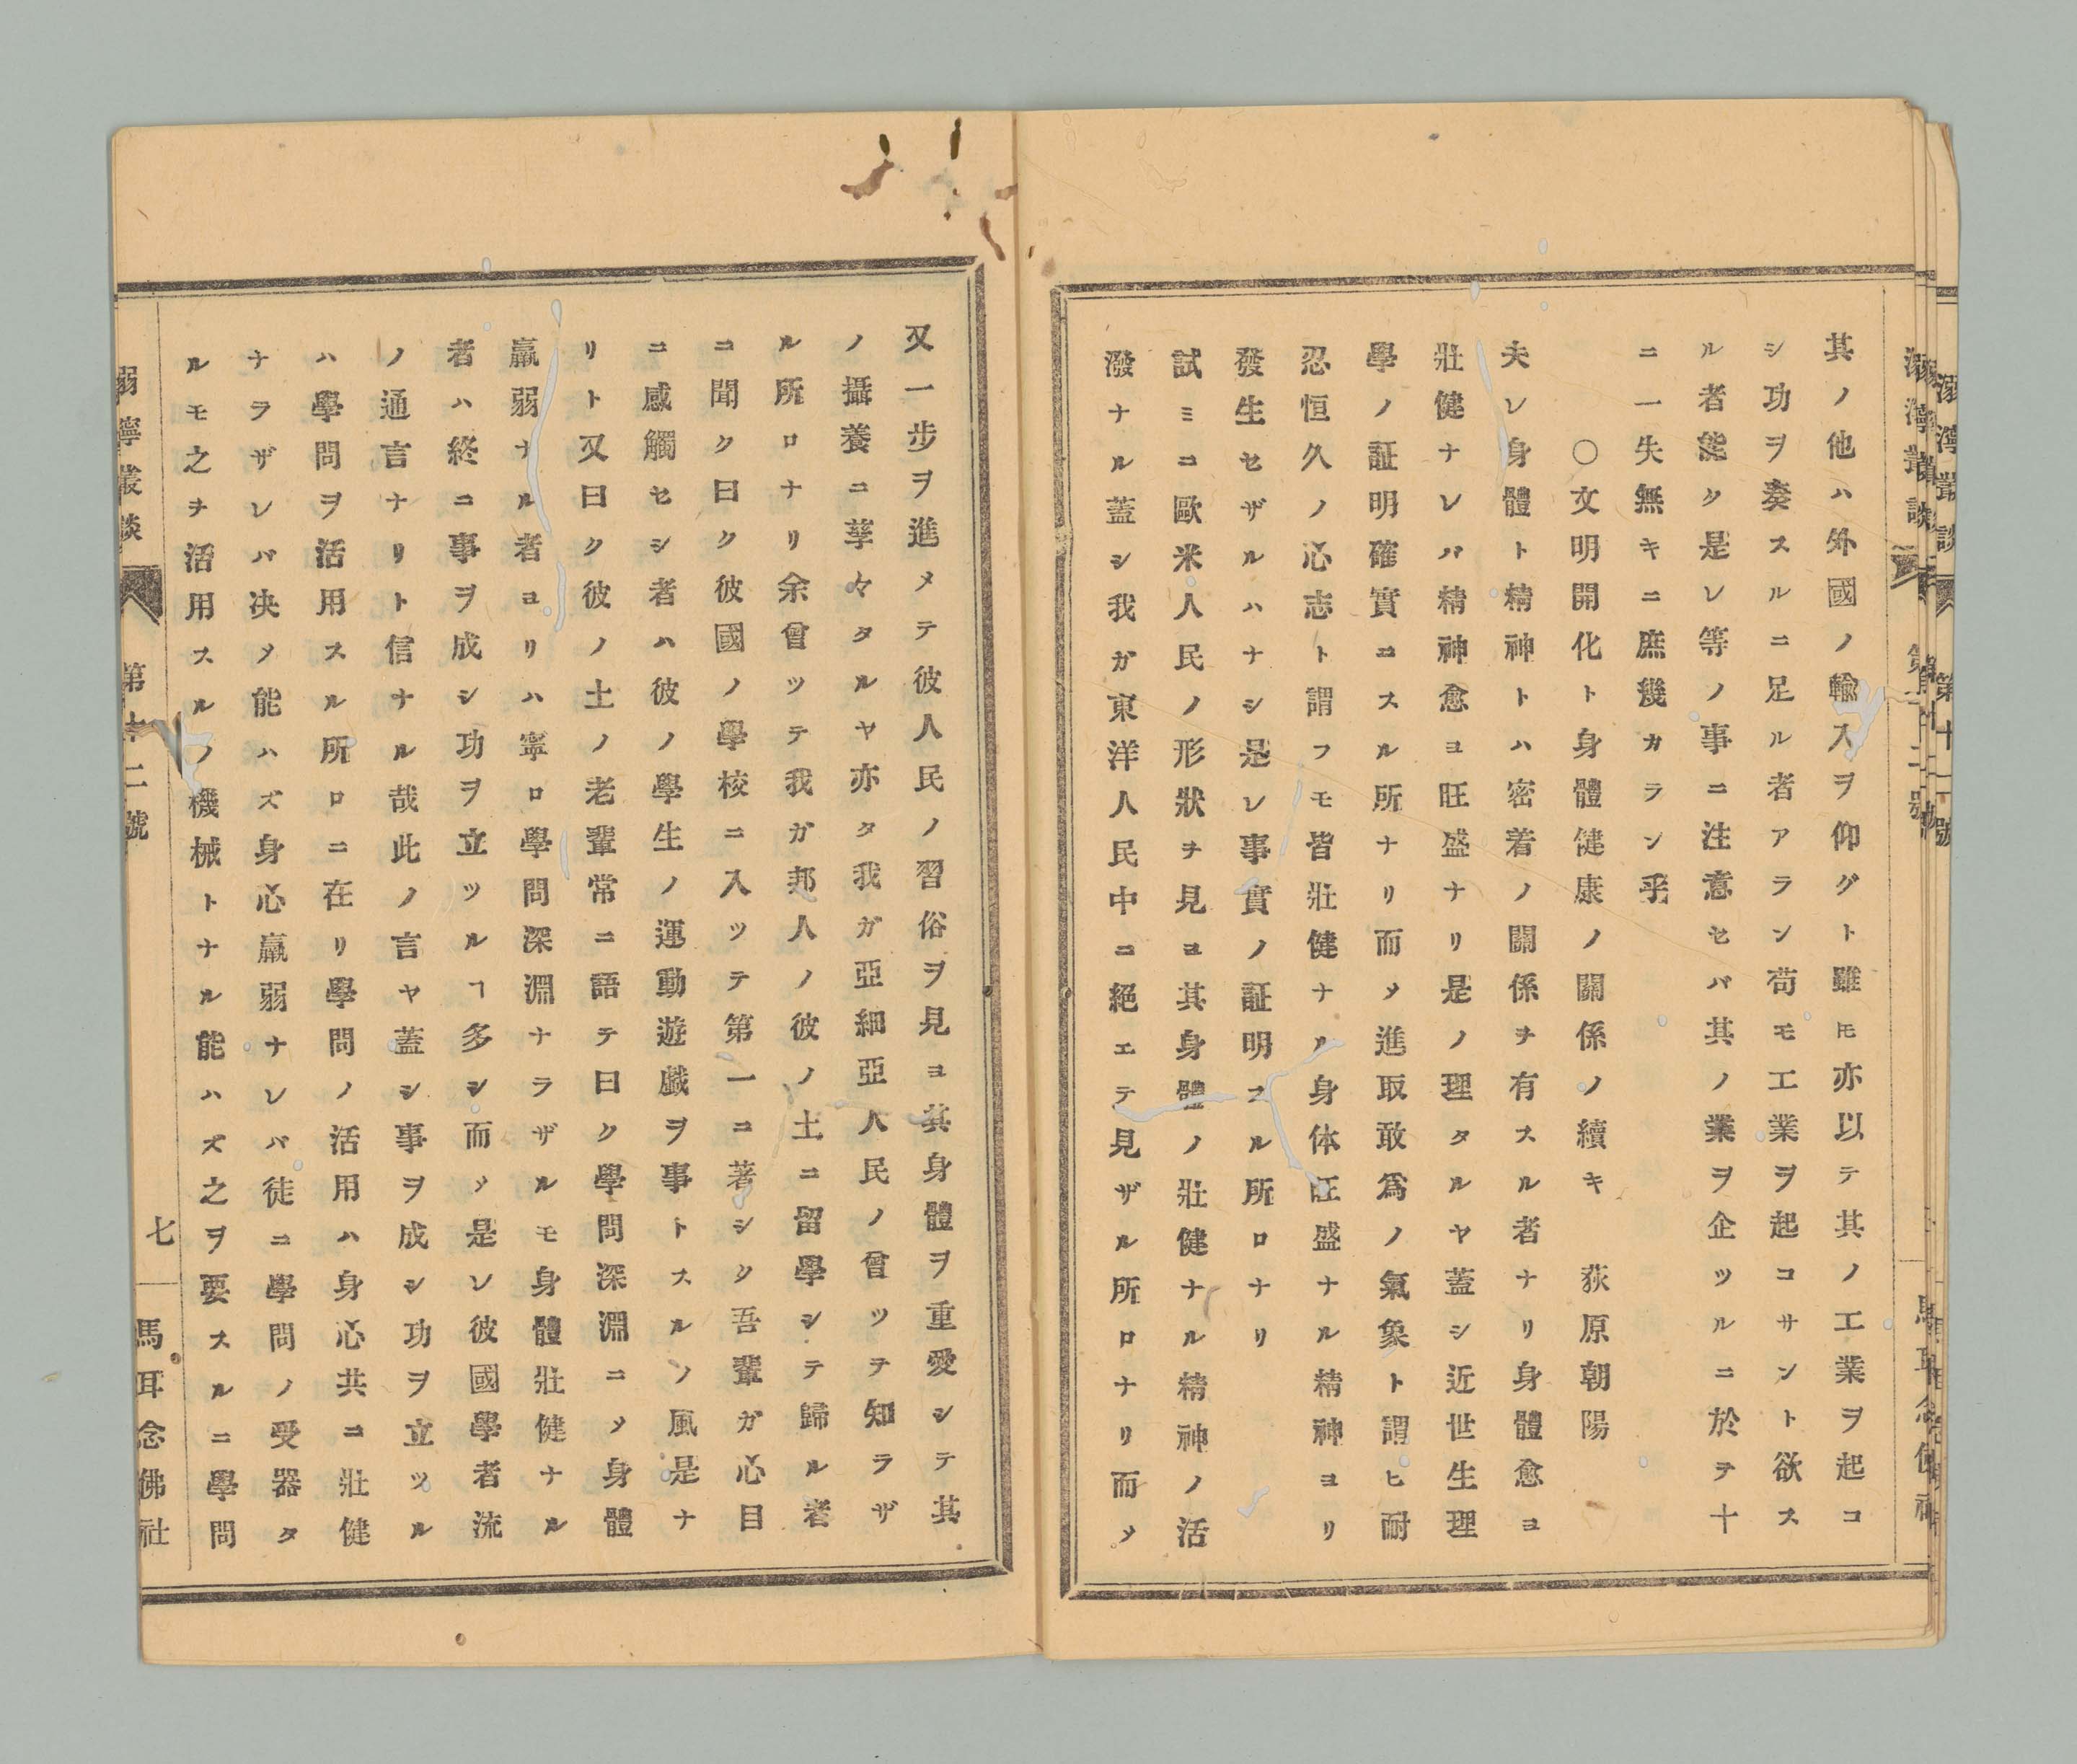 其ノ他ハ外國ノ輸入ヲ仰グト雖モ亦以テ其ノ工業ヲ起コ
シ功ヲ奏スルニ足ル者アラン苟モ工業ヲ起コサント欲ス
ル者能ク是レ等ノ事ニ注意セバ其ノ業ヲ企ツルニ於テ十
ニ一失無キニ庶幾カラン乎
○文明開化ト身體健康ノ關係ノ續キ 荻原朝陽
夫レ身體ト精神トハ密着ノ關係ヲ有スル者ナリ身體愈ヨ
壯健ナレバ精神愈ヨ旺盛ナリ是ノ理タルヤ蓋シ近世生理
學ノ証明確實ニスル所ナリ而メ進取敢爲ノ氣象ト謂ヒ耐
忍恒久ノ心志ト謂フモ皆壯健ナル身体旺盛ナル精神ヨリ
發生セザルハナシ是レ事實ノ証明スル所ロナリ
試ミニ歐米人民ノ形狀ヲ見ヨ其身體ノ壯健ナル精神ノ活
潑ナル蓋シ我ガ東洋人民中ニ絕エテ見ザル所ロナリ而メ
又一步ヲ進メテ彼人民ノ習俗ヲ見ヨ其身體ヲ重愛シテ其
ノ攝養ニ孳々タルヤ亦タ我ガ亞細亞人民ノ曾ツテ知ラザ
ル所ロナリ余曾ツテ我ガ邦人ノ彼ノ土ニ留學シテ歸ル者
ニ聞ク曰ク彼國ノ學校ニ入ツテ第一ニ著シク吾輩ガ心目
ニ感觸セシ者ハ彼ノ學生ノ運動遊戲ヲ事トスルノ風是ナ
リト又曰ク彼ノ土ノ老輩常ニ語テ曰ク學問深淵ニメ身體
羸弱ナル者ヨリハ寧ロ學問深淵ナラザルモ身體壯健ナル
者ハ終ニ事ヲ成シ功ヲ立ツルヿ多シ而メ是レ彼國學者流
ノ通言ナリト信ナル哉此ノ言ヤ蓋シ事ヲ成シ功ヲ立ツル
ハ學問ヲ活用スル所ロニ在リ學問ノ活用ハ身心共ニ壯健
ナラザレバ决メ能ハズ身心羸弱ナレバ徒ニ學問ノ受器タ
ルモ之ヲ活用スルノ機械トナル能ハズ之ヲ要スルニ學問
溺濘叢談 第十二號 七 馬耳念佛社